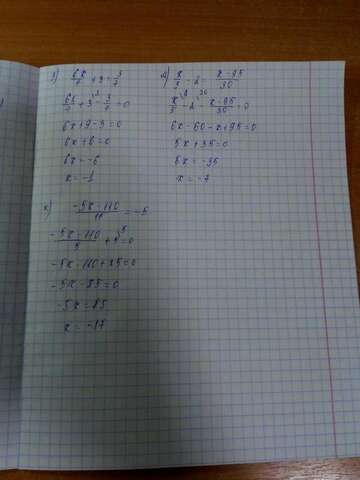 3) 6x/7 + 3 = 3/7
6x/7 + 3 - 3/7 = 0
6x + 9 - 3 = 0
6x + 6 = 0
6x = -6
x = -1
x/5 - 2 = x - 95/30
x/5 - 2 - x - 95/30 = 0
6x - 60 - x + 95 = 0
5x + 35 = 0
5x = -35
x = -7
-5x - 110/ = -5
-5x - 110/5 + 5 = 0
-5x - 110 + 25 = 0
-5x - 85 = 0
-5x = 85
x = -17